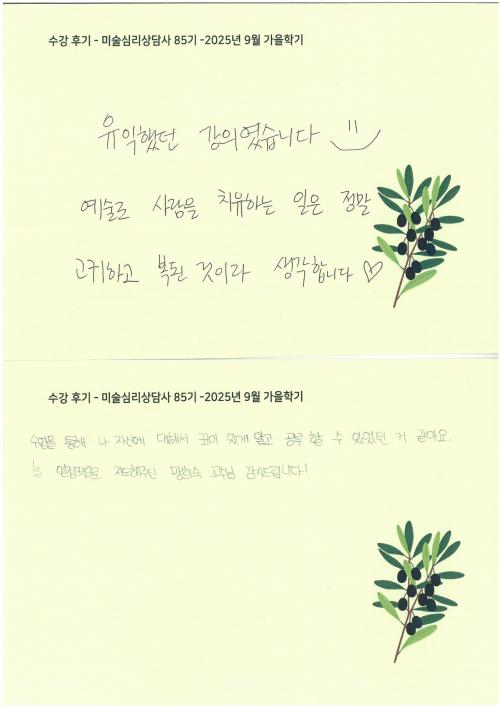 수강 후기 - 미술심리상담사 85기 -2025년 9월 가을학기
유익했던 강의였습니다
예술로 사람을 치유하는 일은 정말
고귀하고 복된 것이라 생각합니다 ♡
수강 후기 - 미술심리상담사 85기 -2025년 9월 가을학기
수업을 통해 나 자신에 대해서 깊이 있게 알고 공부 할 수 있었던 거 같아요.
늘 열정적으로 지도해주신 교수님 감사드립니다!